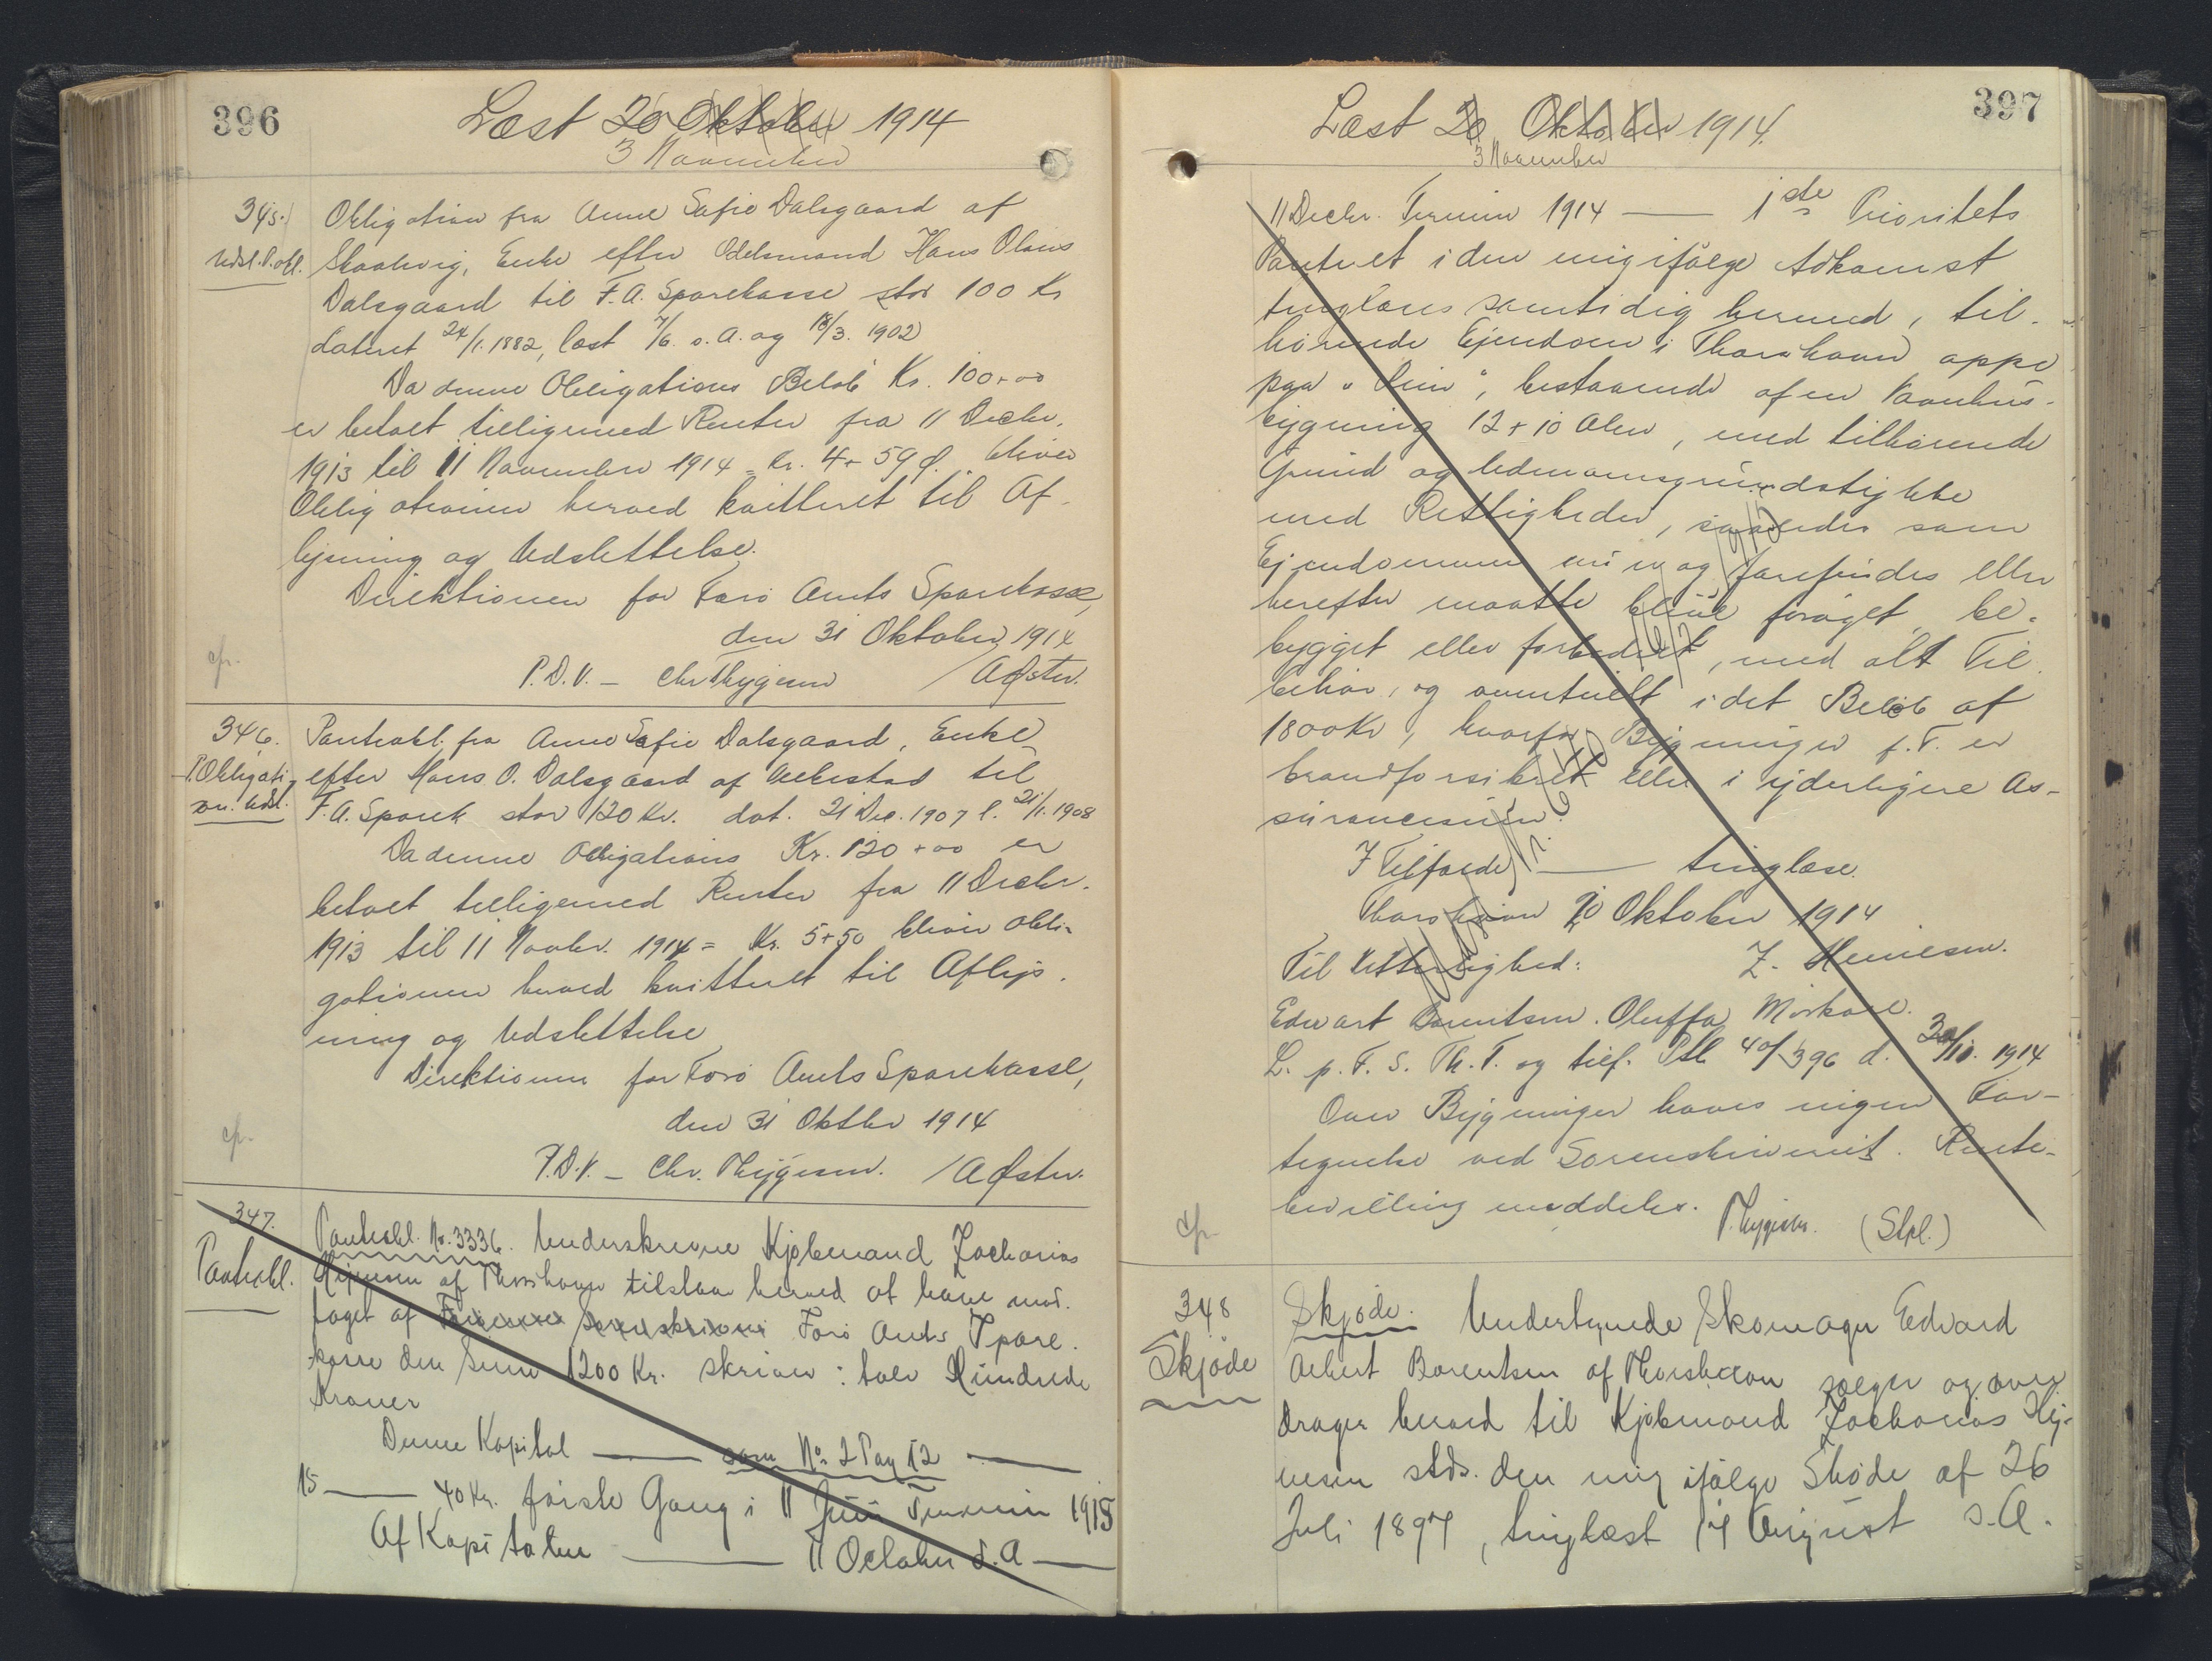 396
Læst 20 Oktober 1914
3 November
345.
Udsl. P. obl.
Obligation fra Anne Sofie Dalsgaard af
Skaalevig, Enke efter Odelsmand Hans Olaus
Dalsgaard til F.A. Sparekasse stor 100 Kr
dateret 24/1. 1882, læst 7/6. s.A. og 18/3. 1902
Da denne Obligations Beløb Kr. 100+00
er betalt tilligemed Renter fra 11 Decbr.
1913 til 11 November 1914 = Kr. 4+59 Ø. bliver
Obligationen herved kvitteret til Af-
lysning og Udslettelse.
Direktionen for Færø Amts Sparekasse,
den 31 Oktober 1914
P.D.V. – Chr Thygesen / A Øster.
cfr.
346.
P.Obligati-
on. Udsl.
Panteobl. fra Anne Sofie Dalsgaard, Enke
efter Hans O. Dalsgaard af til
F.A. Sparek stor 120 Kr. dat. 21 Dec. 1907 l. 21/1. 1908
Da denne Obligations Kr. 120+00 er
betalt tilligemed Renter fra 11 Decbr.
1913 til 11 Novbr. 1914 = Kr. 5+50 bliver Obli-
gationen herved kvitteret til Aflys-
ning og Udslettelse
Direktionen for Færø Amts Sparekasse,
den 31 Oktbr 1914
P.D.V. – Chr. Thygesen. / A Øster.
cfr.
347.
Panteobl.
Panteobl. Nr. 3336. Underskrevne Kjøbmand Zacharias
Hejnesen af Thorshavn tilstaar herved at have mod-
taget af Færø Amts Spare-
kasse den Sum 1200 Kr. skriver: tolv Hundrede
Kroner
Denne Kapital — som No 2 Pag 12 —
15 — 40 Kr. første Gang i 11 Juni Termin 1915
Af Kapitalen — 11 October d.A —
397
Læst 20 Oktober 1914.
3 November
11 Decbr. Termin 1914 — 1ste Prioritets
Panteret i den mig ifølge Adkomst
tinglæses samtidig hermed, til-
hørende Ejendom i Thorshavn oppe
paa " ", bestaaende af en Vaanhus-
bygning 12 + 10 Alen, med tilhørende
Grund og Udmarksgrundstykke
med Rettigheder, saaledes som
Ejendommen nu er og forefindes eller
herefter maatte blive forøget, be-
bygget eller forbedret, med alt Til-
behør, og eventuelt i det Beløb af
1800 Kr, hvorfor Bygningen p.T. er
brandforsikret eller i yderligere As-
surancesum.
I Tilfælde — tinglæse.
Thorshavn 20 Oktober 1914
Til Vitterlighed: Z. Heinesen.
Edvart Barentsen. Oluffa Mørkøre.
L. p. F. S. Th. T. og tilf. Ptb 40/396 d. 30/10. 1914
Over Bygninger haves ingen For-
tegnelse ved Sorenskriveriet. Rente-
bevilling meddeles. Thygesen. (Stpl.)
cfr.
348
Skjøde
Skjøde. Undertegnede Skomager Edvard
Albert Barentsen af Thorshavn sælger og over-
drager herved til Kjøbmand Zacharias Hej-
nesen stds. den mig ifølge Skøde af 26
Juli 1897, tinglæst 17 August s.A.